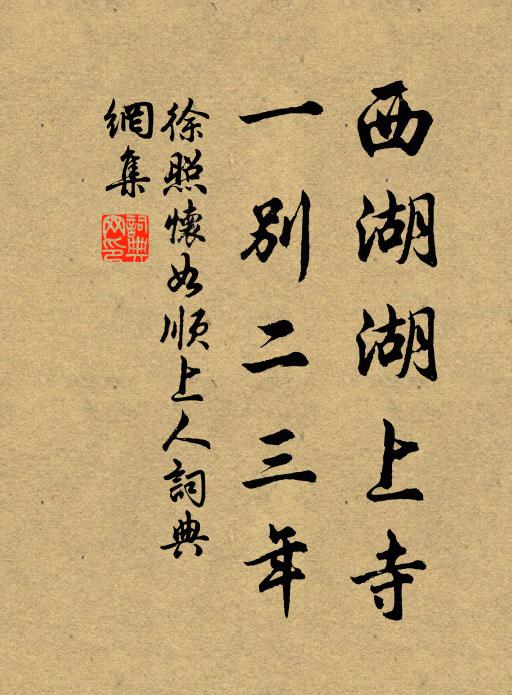 西湖湖上寺
一別二三年
徐照懷如順上人詞典
網集
詞典
网印